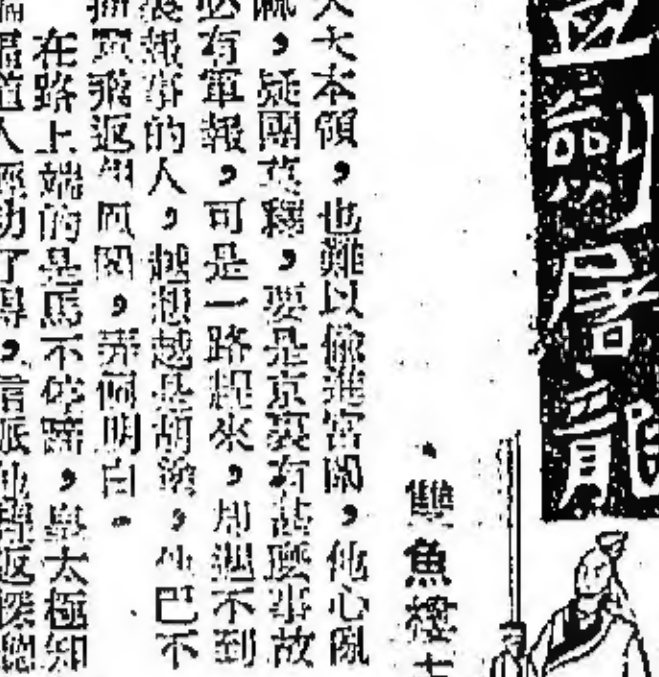 血劍屠龍
雙魚樓主
天大本領，也難以偷進宮闕，他心亂
疑團莫釋，要是京裏有甚麼事故
必有軍報，可是一路趕來，却遇不到
報事的人，越想越是胡塗，他巴不
翼飛返翔鳳閣，弄個明白。
在路上端的是馬不停蹄，皇太極知
道人輕功了得，信派他